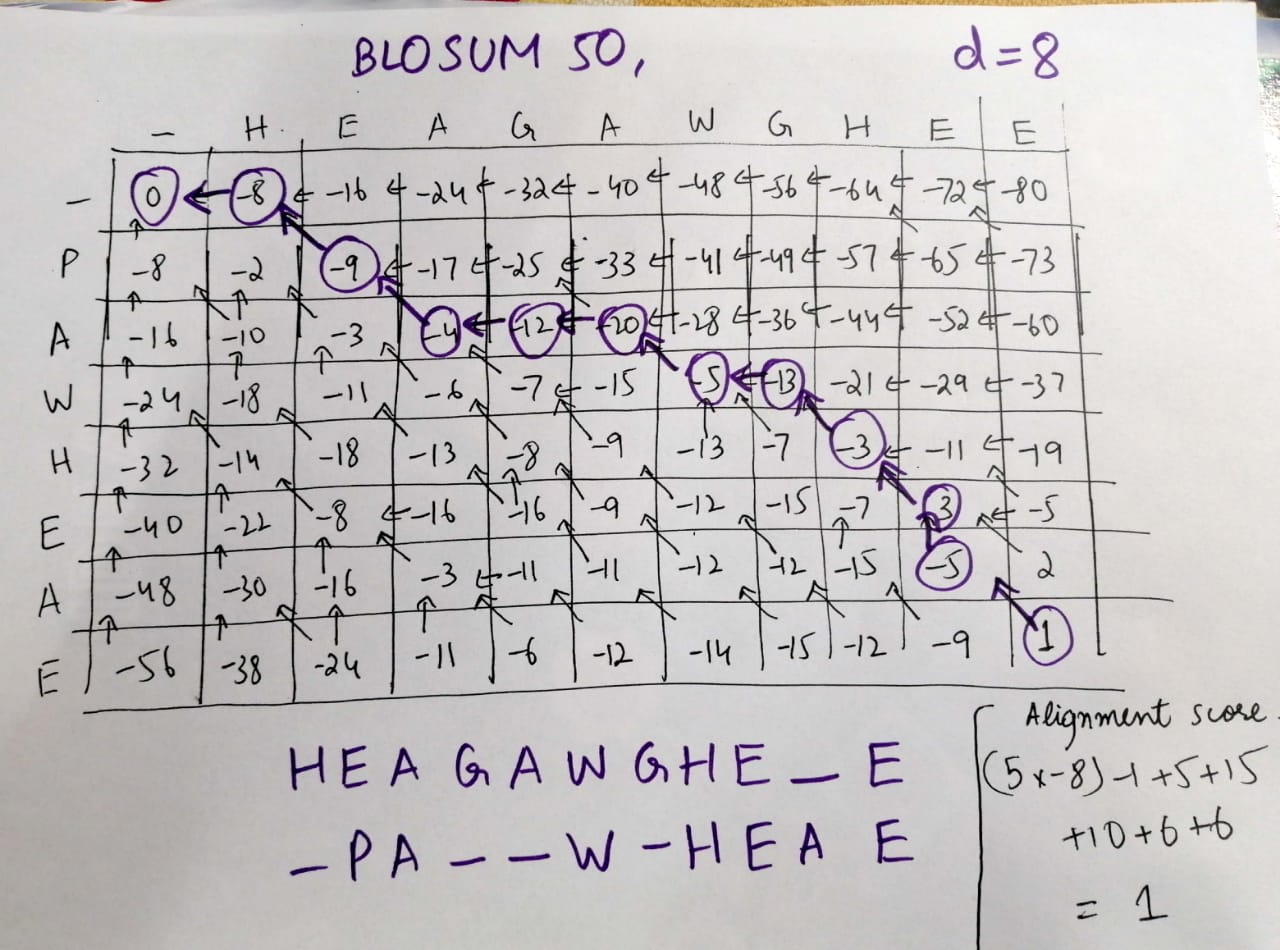 BLOSUM 50, d=8
– H E A G A W G H E E
– 0 ← -8 ← -16 ← -24 ← -32 ← -40 ← -48 ← -56 ← -64 ← -72 ← -80
P -8 -2 -9 ← -17 ← -25 ← -33 ← -41 ← -49 ← -57 ← -65 ← -73
A -16 -10 -3 -4 ← -12 ← -20 ← -28 ← -36 ← -44 ← -52 ← -60
W -24 -18 -11 -6 -7 ← -15 -5 ← -13 -21 ← -29 ← -37
H -32 -14 -18 -13 -8 -9 -13 -7 -3 ← -11 ← -19
E -40 -22 -8 ← -16 -16 -9 -12 -15 -7 3 ← -5
A -48 -30 -16 -3 ← -11 -11 -12 -12 -15 -5 2
E -56 -38 -24 -11 -6 -12 -14 -15 -12 -9 1
HEAGAWGHE_E
_PA--W-HEAE
Alignment score.
(5x-8)-1+5+15
+10+6+6
= 1